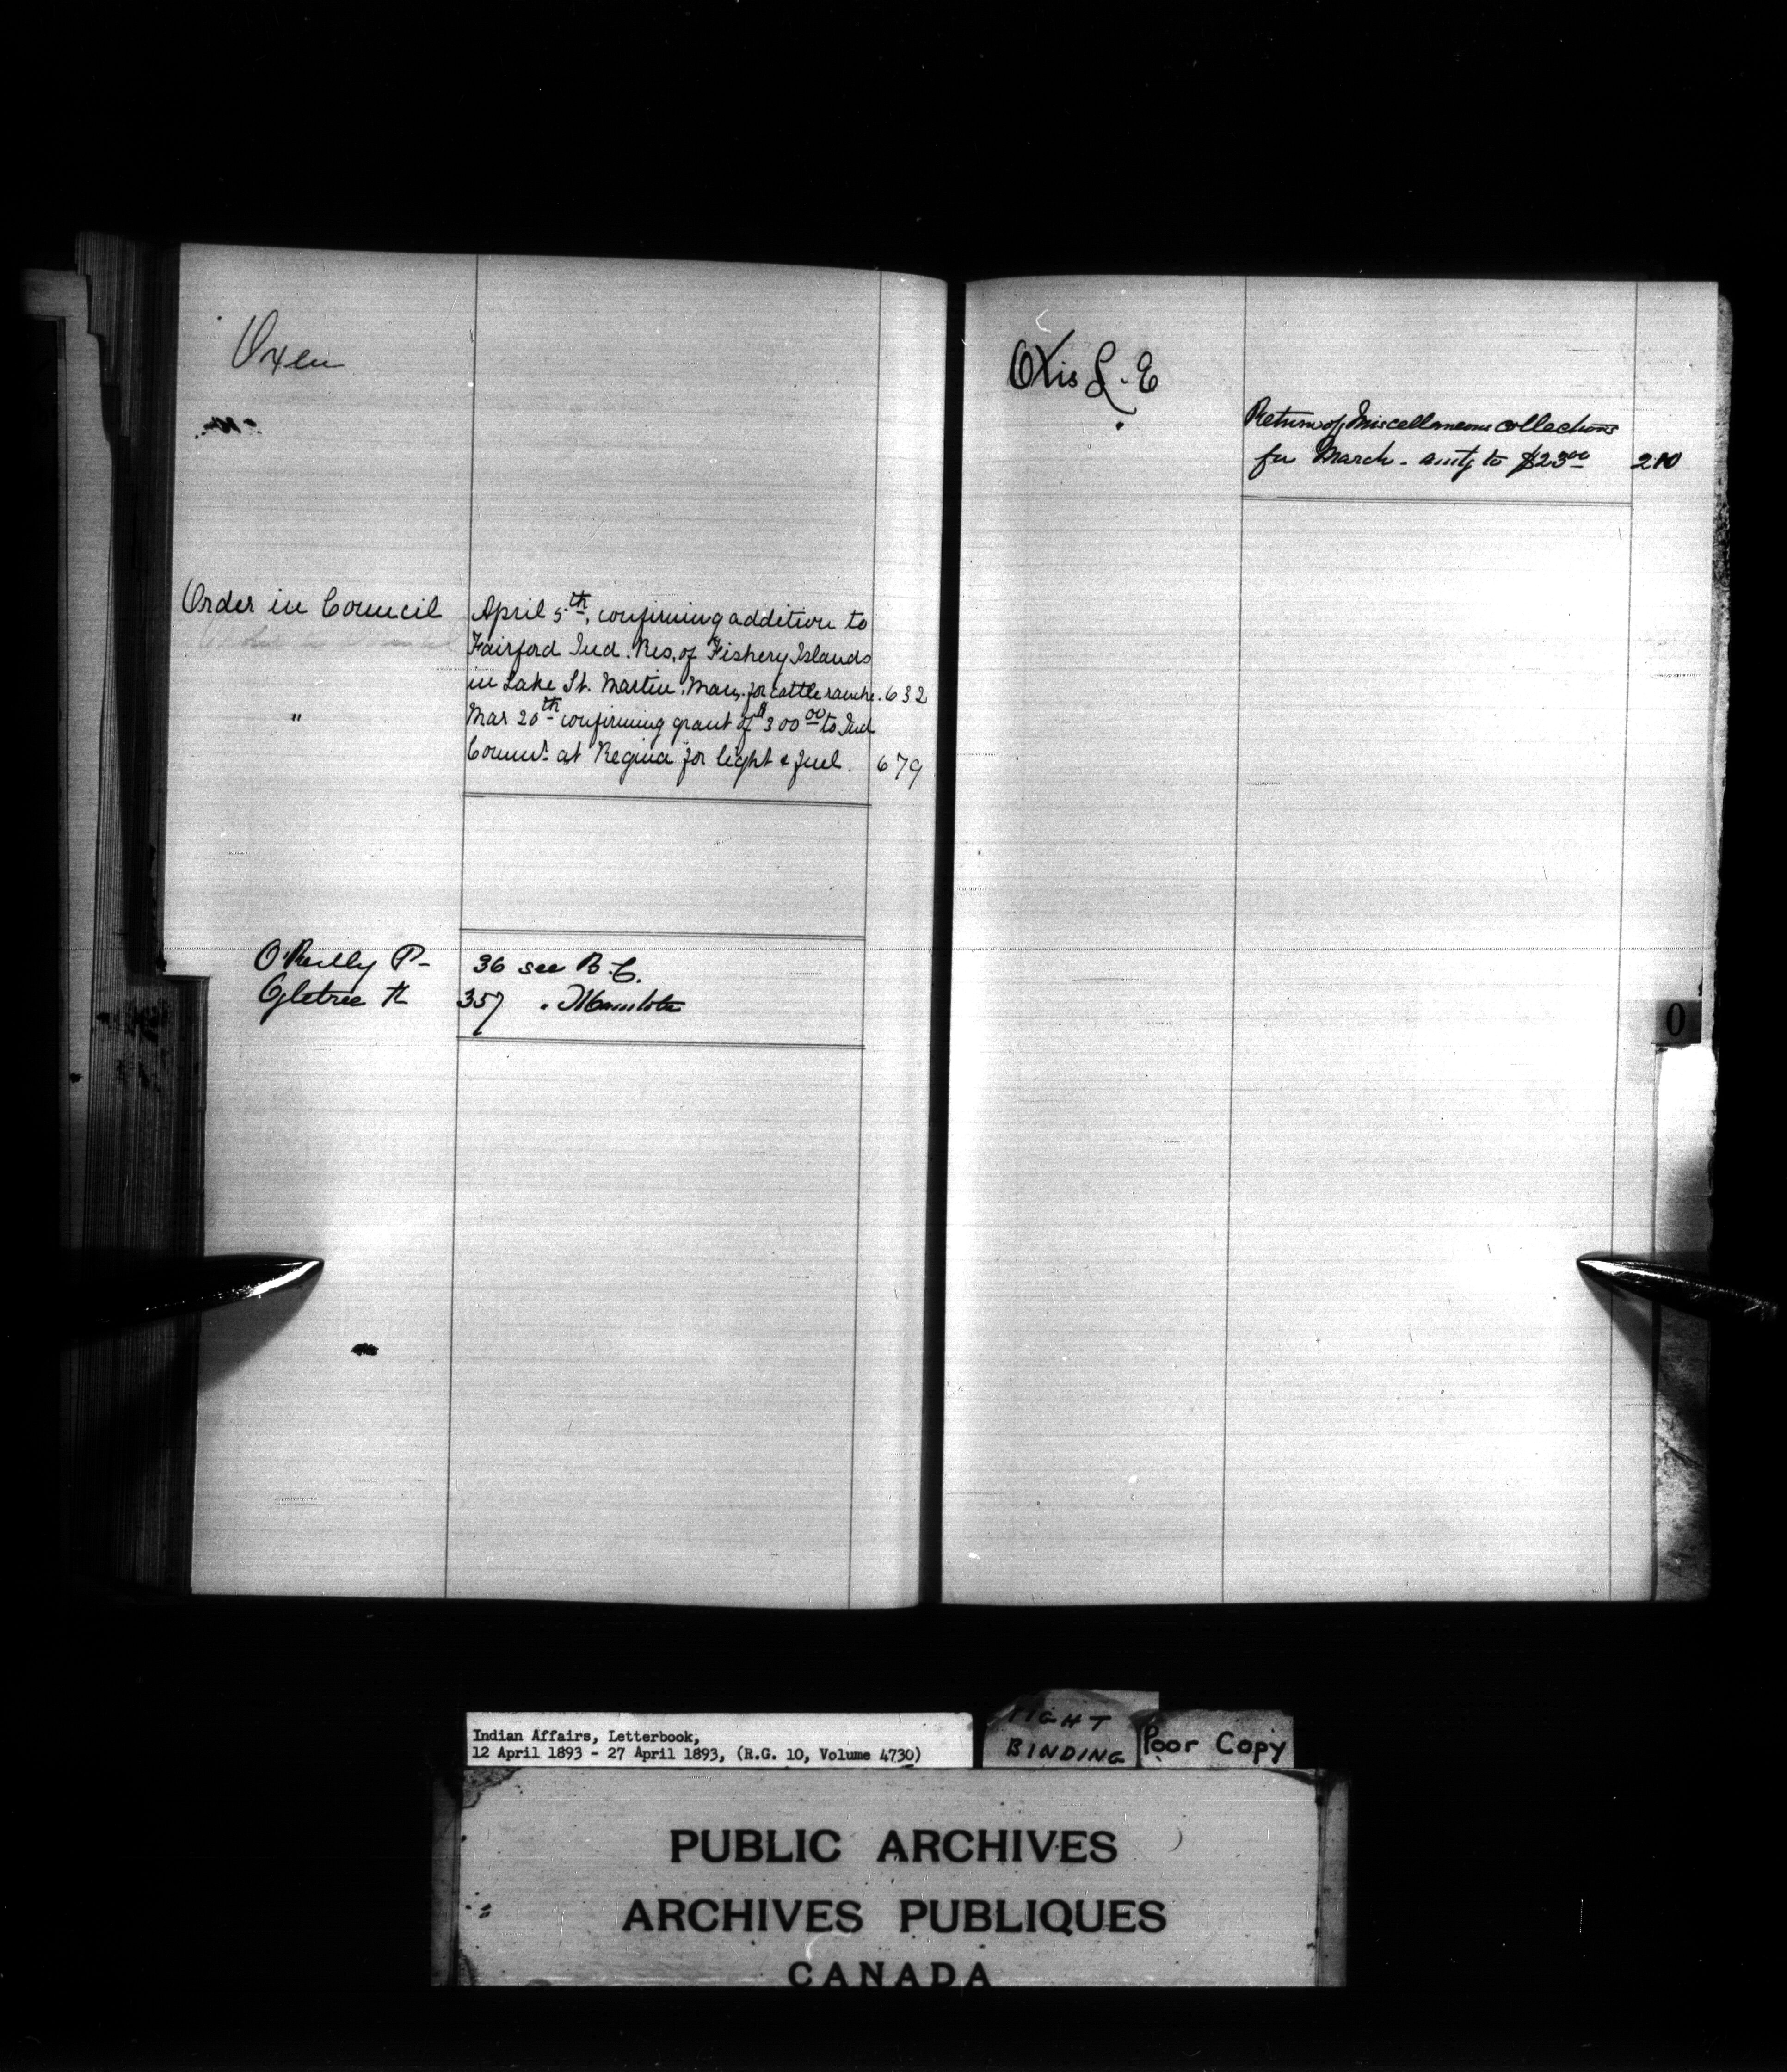 Oxen
Order in Council
April 5th, confirming addition to
Fairford Ind. Res, of Fishery Islands
in Lake St. Martin, Man, for cattle ranche. 632
"
Mar 20th confirming grant of $300 00 to Ind
Commr. at Regina for light & fuel. 679
O'Reilly P- 36 see B.C.
Ogletree 357 " Manitoba
Otis L. E
Return of Miscellaneous collections
for March - amtg to $23 00 210
O
Indian Affairs, Letterbook,
12 April 1893 - 27 April 1893, (R.G. 10, Volume 4730)
TIGHT
BINDING
Poor Copy
PUBLIC ARCHIVES
ARCHIVES PUBLIQUES
CANADA